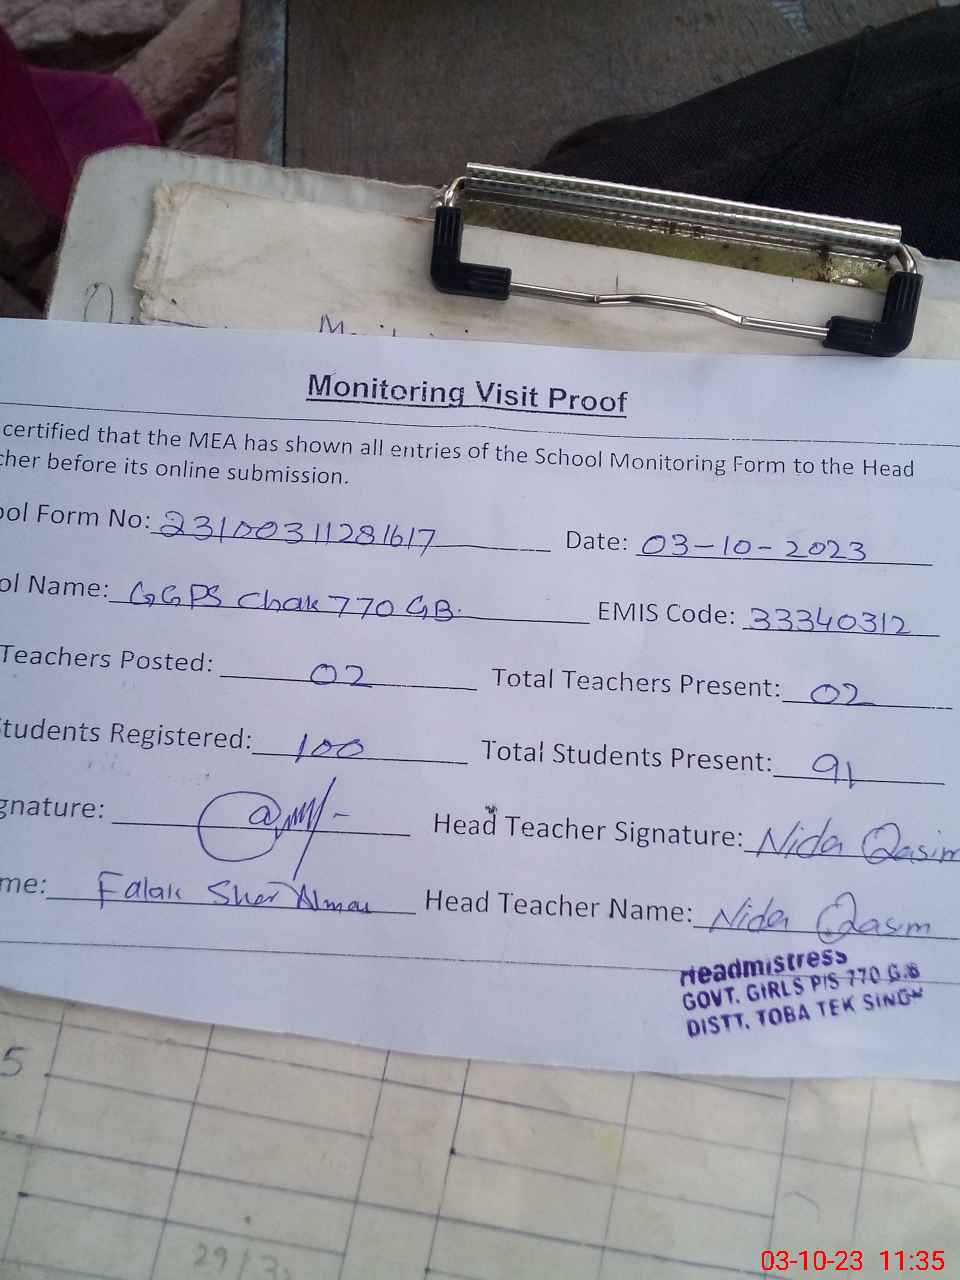 Monitoring Visit Proof
certified that the MEA has shown all entries of the School Monitoring Form to the Head
cher before its online submission.
ool Form No: 23100311281617 Date: 03-10-2023
ol Name: GGPS Chak 770 GB. EMIS Code: 33340312
Teachers Posted: 02 Total Teachers Present: 02
tudents Registered: 100 Total Students Present: 91
gnature: Head Teacher Signature: Nida Qasim
me: Falak Sher Head Teacher Name: Nida Qasim
Headmistress
GOVT. GIRLS P/S 770 G.B
DISTT. TOBA TEK SINGH
5
03-10-23 11:35